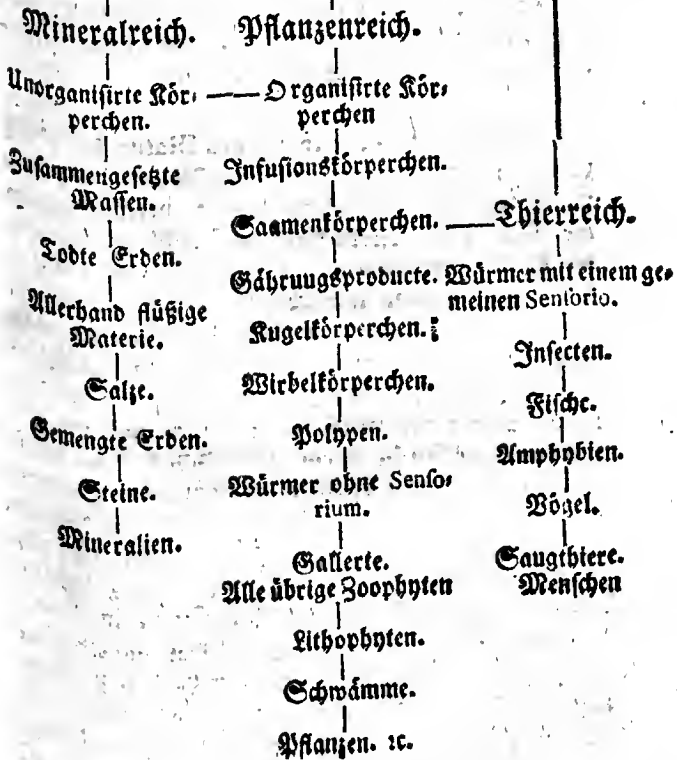 Mineralreich.
Unorganisirte Kör-
perchen.
Zusammengesetzte
Massen.
Todte Erden.
Allerhand flüßige
Materie.
Salze.
Gemengte Erden.
Steine.
Mineralien.
Pflanzenreich.
Organisirte Kör-
perchen
Infusionskörperchen.
Saamenkörperchen.
Gährungsproducte.
Kugelkörperchen.
Wirbelkörperchen.
Polypen.
Würmer ohne Senso-
rium.
Gallerte.
Alle übrige Zoophyten
Lithophyten.
Schwämme.
Pflanzen. ꝛc.
Thierreich.
Würmer mit einem ge-
meinen Sensorio.
Insecten.
Fische.
Amphybien.
Vögel.
Saugthiere.
Menschen